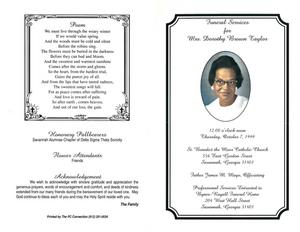 Poem
We must live through the weary winter
If we would value spring,
And the woods must be cold and silent
Before the robins sing.
The flowers must be buried in the darkness
Before they can bud and bloom,
And the sweetest and warmest sunshine
Comes after the storm and gloom.
So the heart, from the hardest trial,
Gains the purest joy of all
And from the lips that have tasted sadness,
The sweetest songs will fall.
For as peace comes after suffering
And love is reward of pain.
So after earth , comes heaven,
And out of our loss, the gain.
Honorary Pallbearers
Savannah Alumnae Chapter of Delta Sigma Theta Sorority
Flower Attendants
Friends
Acknowledgement
We wish to acknowledge with sincere gratitude and appreciation the
generous prayers, words of encouragement and comfort, and deeds of kindness
extended from our many friends during the bereavement of our loved one. May
God continue to bless each of you and may the Holy Spirit guide you always.
The Family
Printed by The PC Connection (912) 201-0534
Funeral Services
for
Mrs. Dorothy Brown Taylor
12:00 o'clock noon
Thursday, October 7, 1999
St. Benedict the Moor Catholic Church
556 East Gordon Street
Savannah, Georgia 31401
Father James M. Mayo, Officiating
Professional Services Entrusted to
Bynes-Royall Funeral Home
204 West Hall Street
Savannah, Georgia 31401